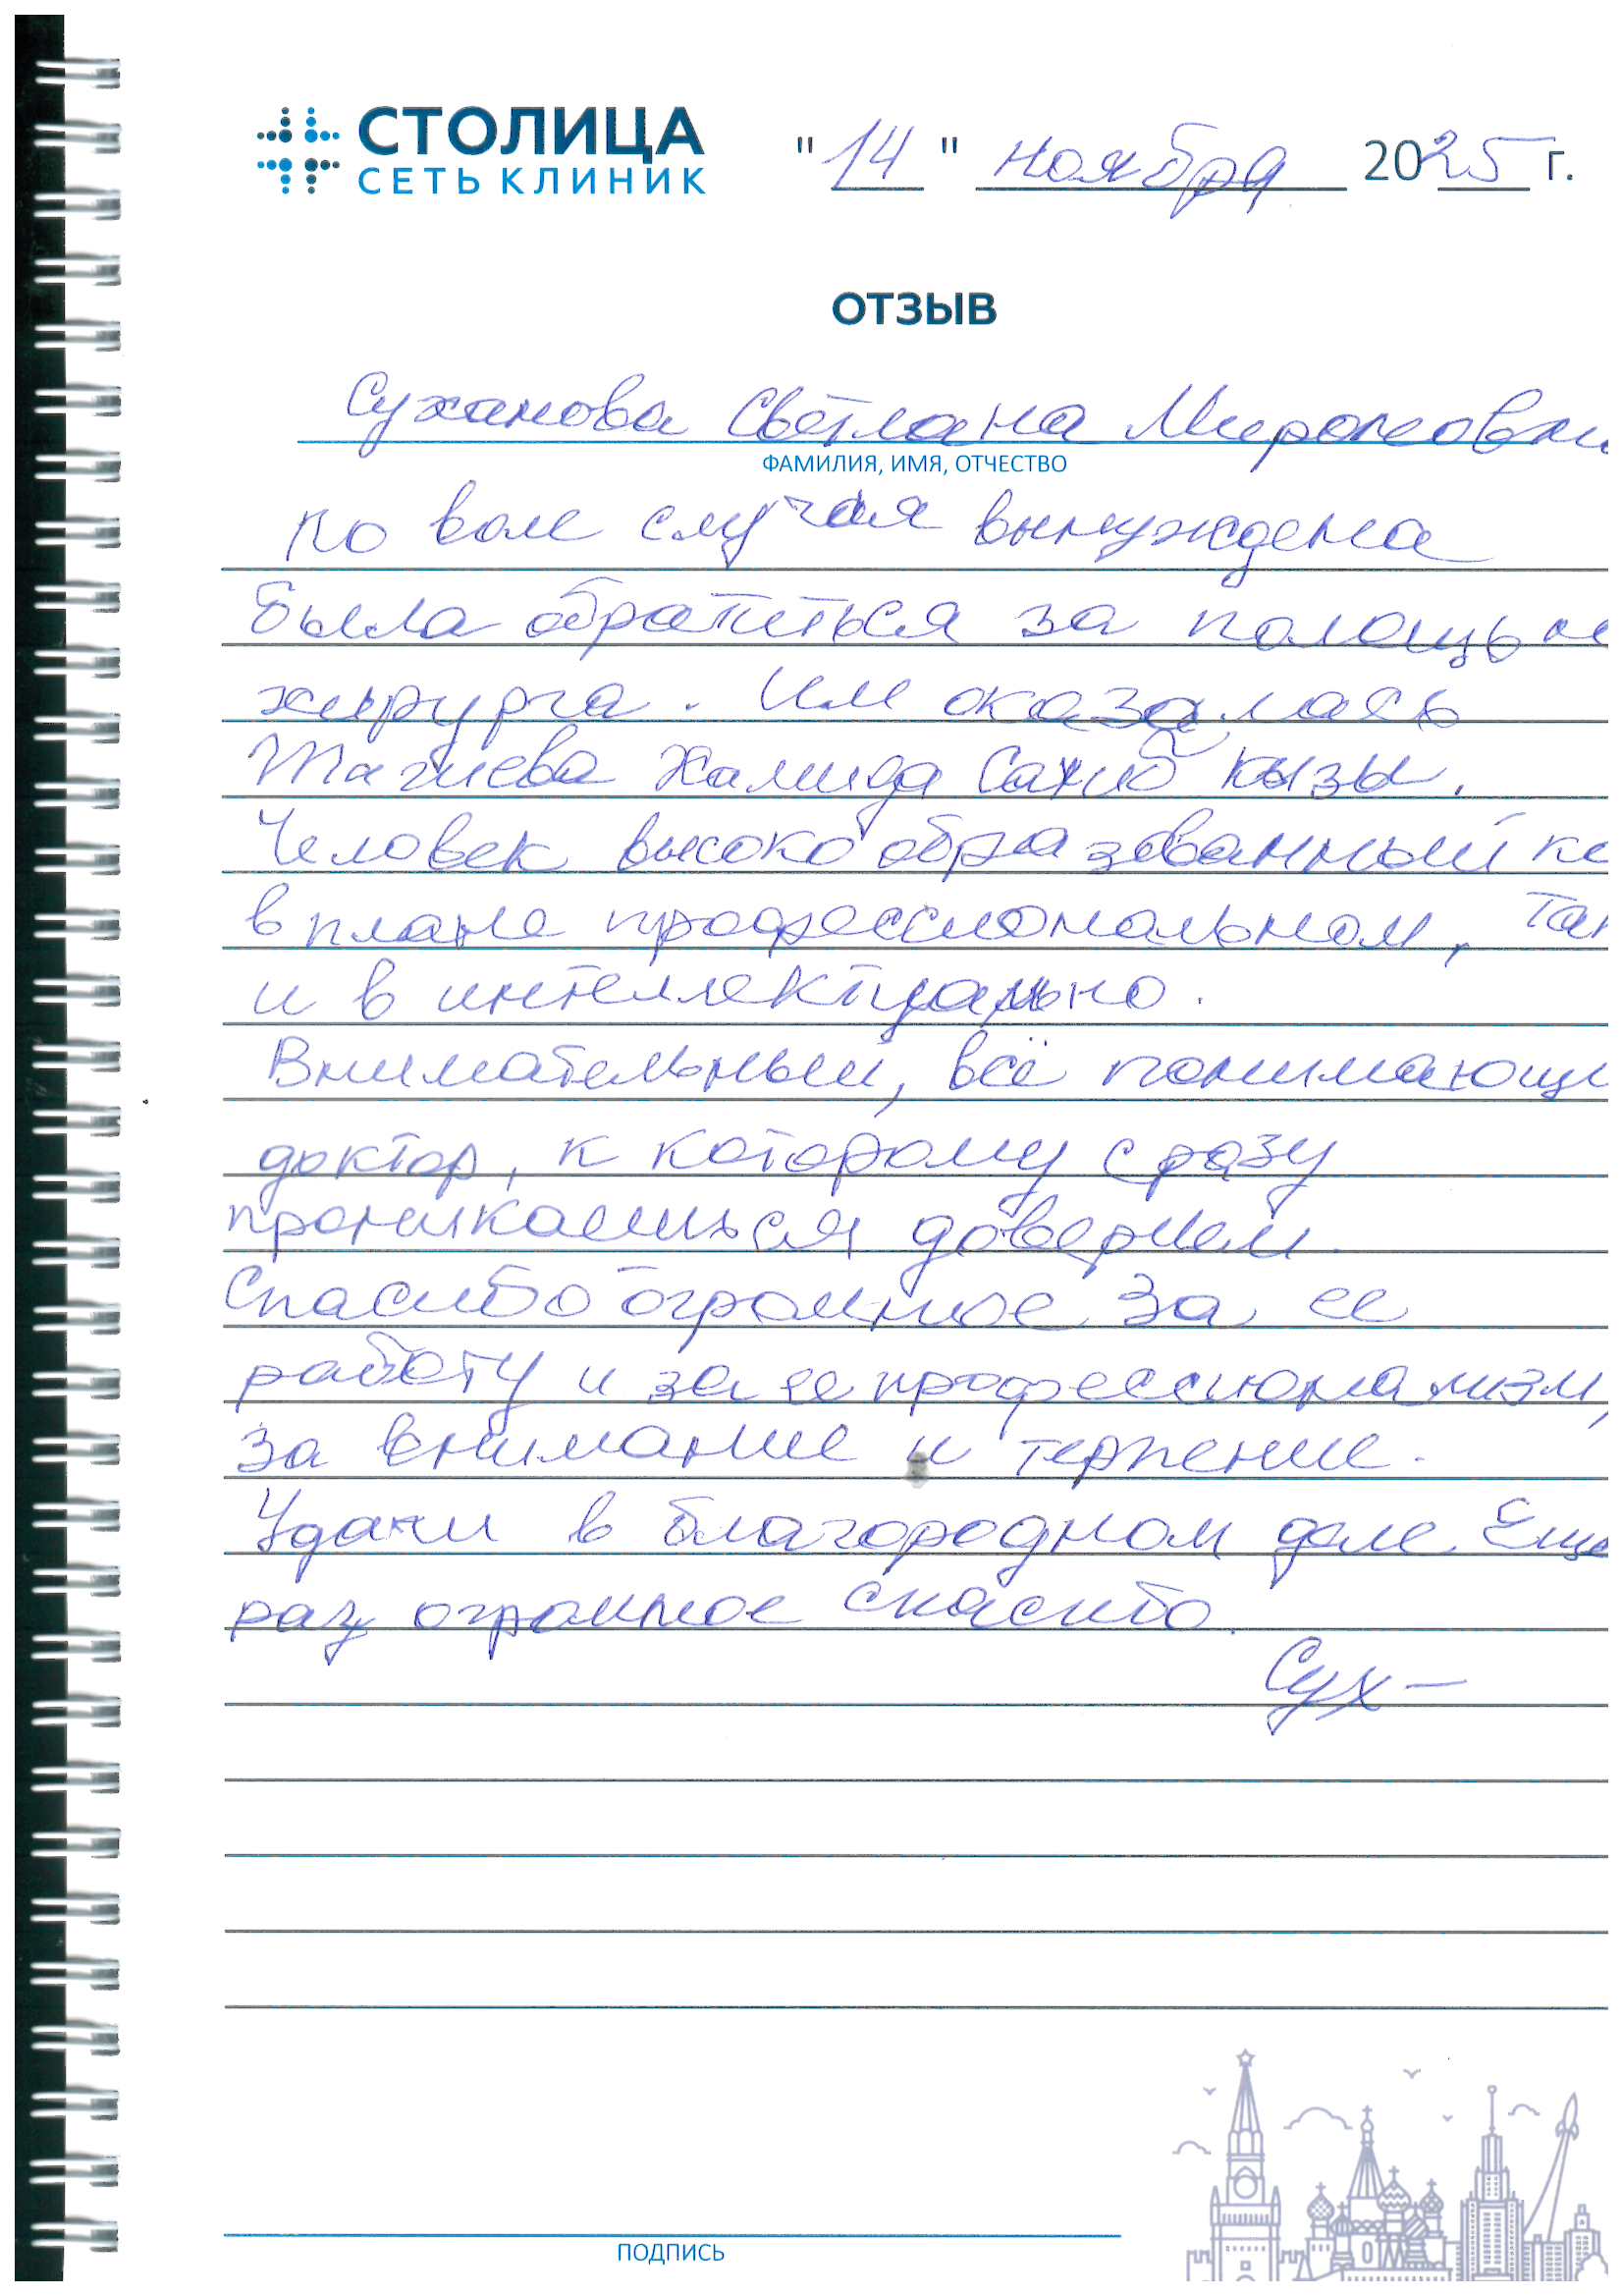 СТОЛИЦА
СЕТЬ КЛИНИК
"14" ноября 2025 г.
ОТЗЫВ
Суханова Светлана Мироновн
ФАМИЛИЯ, ИМЯ, ОТЧЕСТВО
по воле случая вынуждена
была обратиться за помощью
хирурга. Им оказалась
Тагиева Халида Сахиб кызы.
Человек высоко образованный ка
в плане профессиональном, так
и в интеллектуально.
Внимательный, всё понимающи
доктор, к которому сразу
проникаешься доверием.
Спасибо огромное за ее
работу и за ее профессионализм,
за внимание и терпение.
Удачи в благородном деле. Еще
раз огромное спасибо.
Сух
ПОДПИСЬ